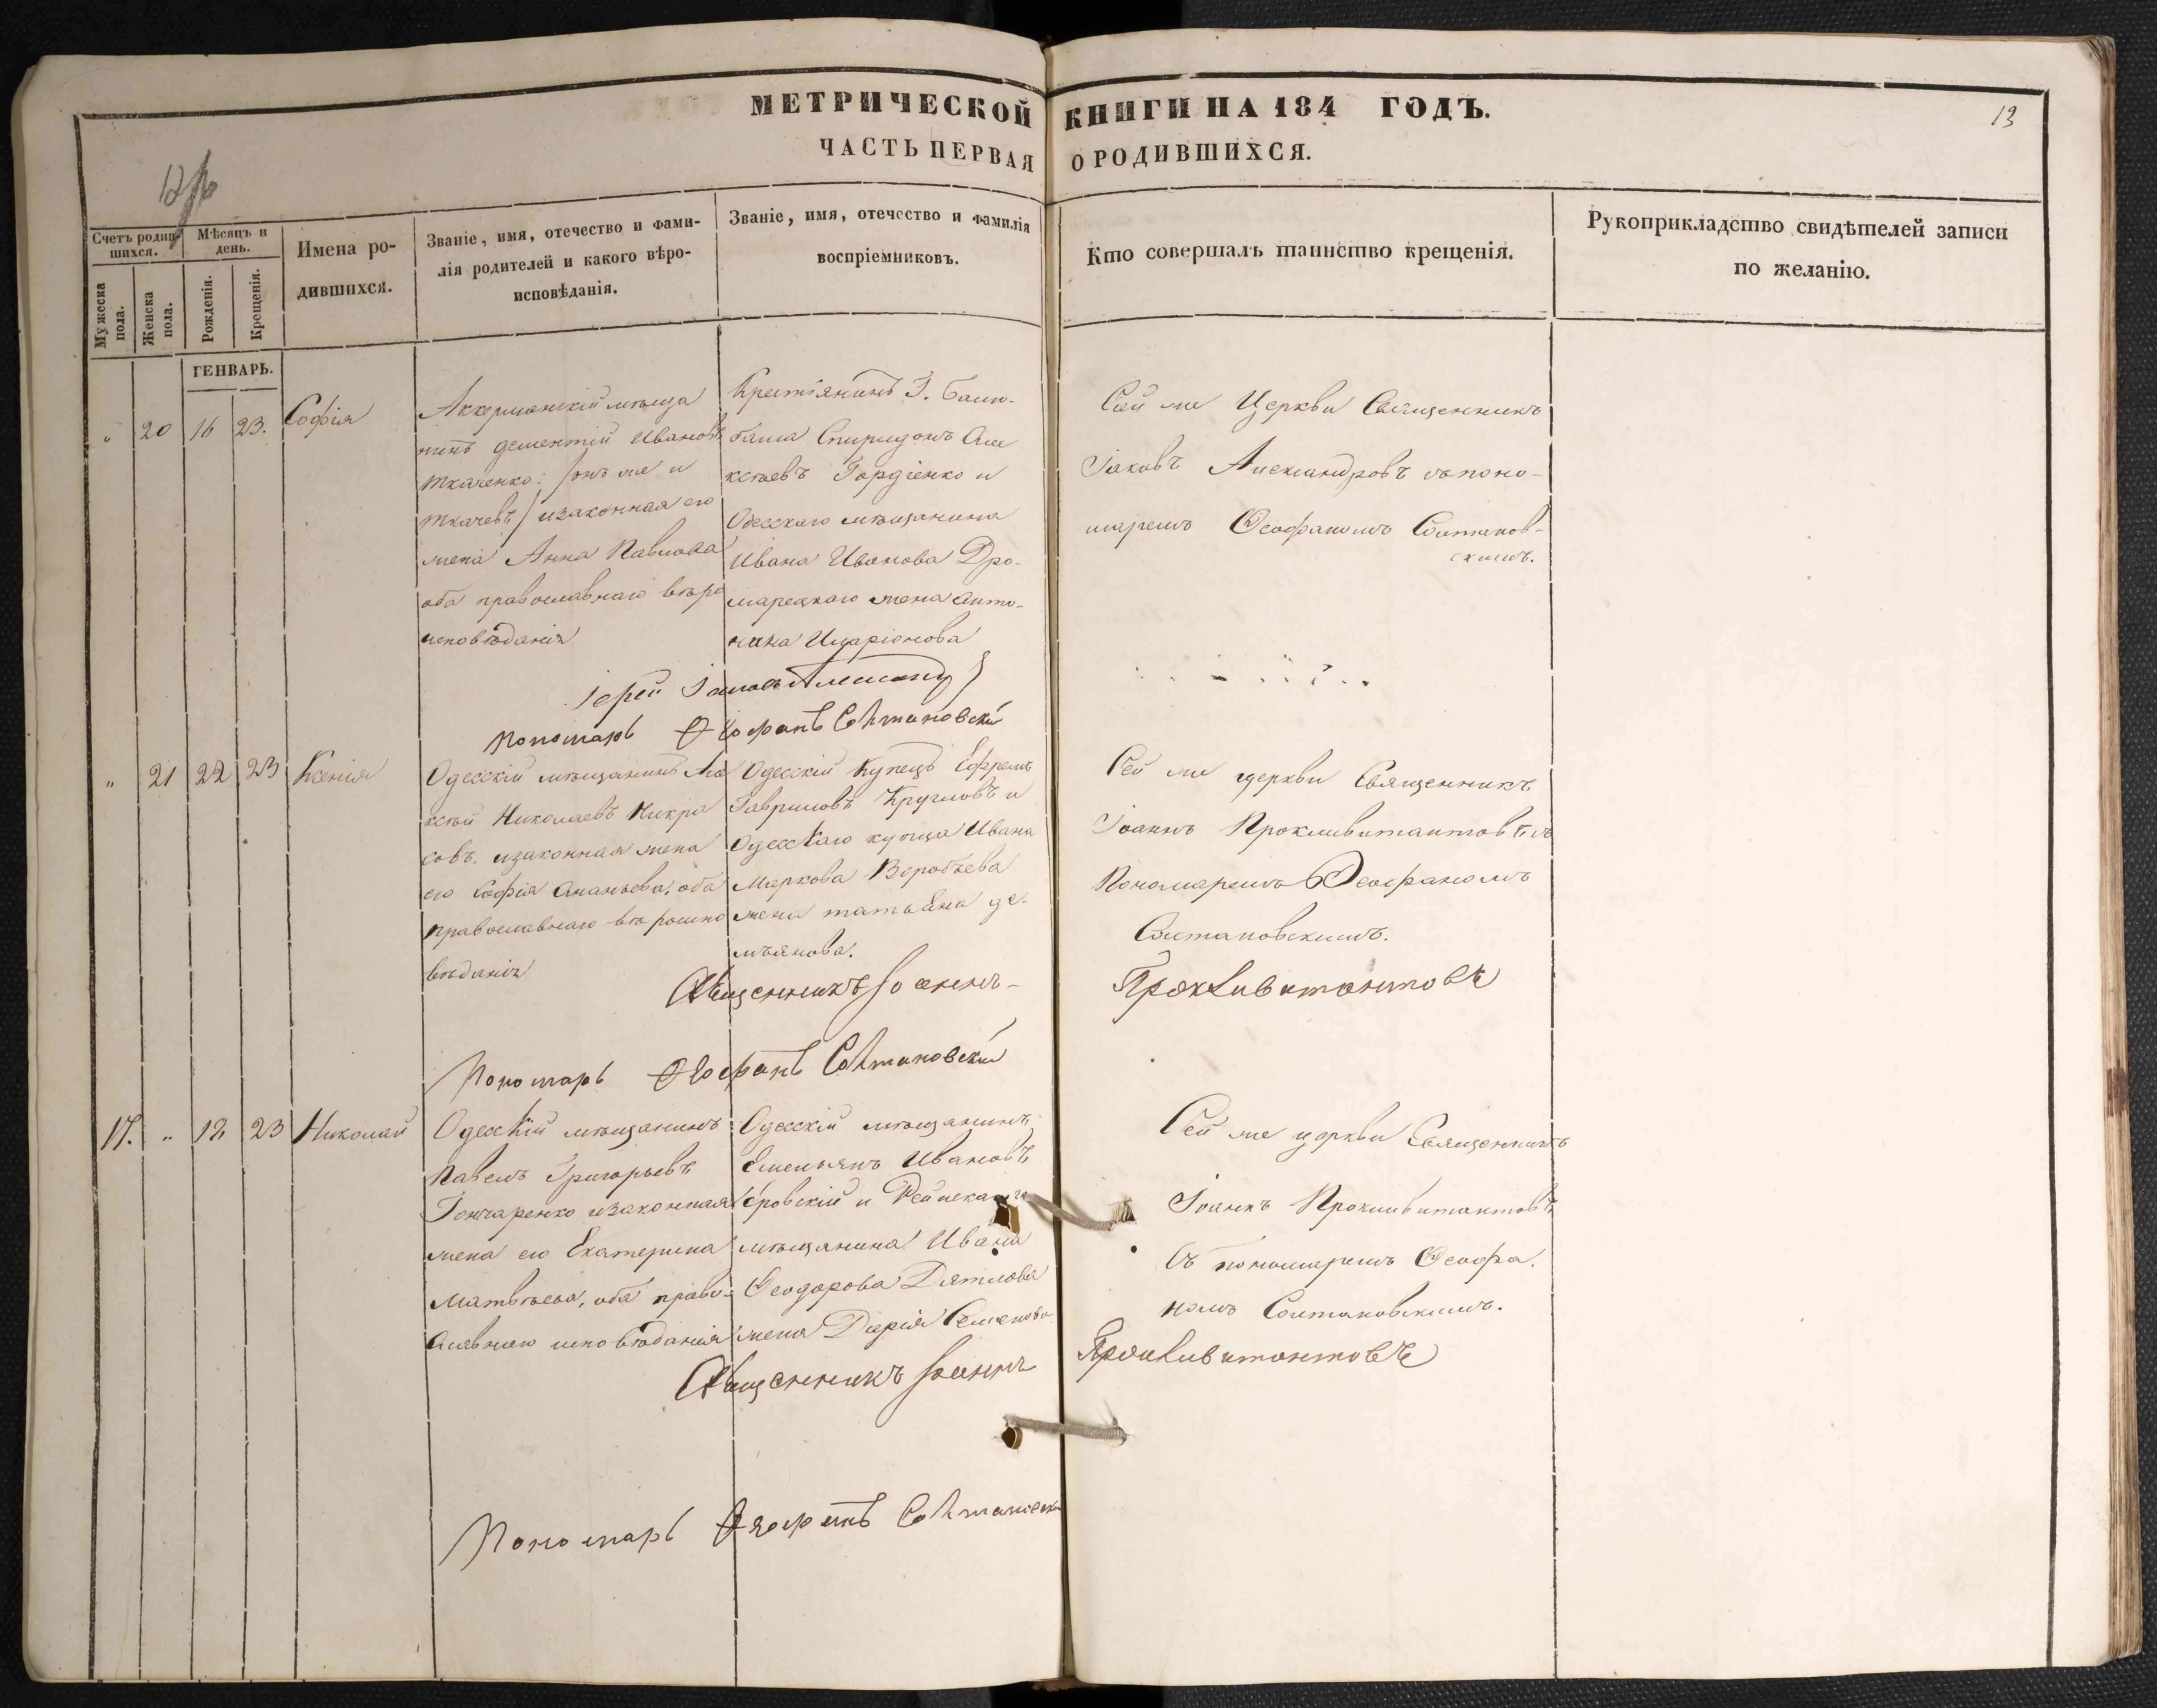 МЕТРИЧЕСКОЙ КНИГИ НА 184 ГОДЪ.
ЧАСТЬ ПЕРВАЯ О РОДИВШИХСЯ.
13
Счетъ родив-
шихся.
Мужеска
пола.
Женска
пола.
Мѣсяцъ и
день.
Рожденія.
Крещенія.
Имена ро-
дившихся.
Званіе, имя, отечество и фами-
лія родителей и какого вѣро-
исповѣданія.
Званіе, имя, отечество и фамилія
воспріемниковъ.
Кто совершалъ таинство крещенія.
Рукоприкладство свидѣтелей записи
по желанію.
ГЕНВАРЬ.
" 20 16 23. Софія
Аккерманскій мѣща
нинъ дементій Ивановъ
Ткаченко: /онъ же и
Ткачевъ/ изаконная его
жена Анна Павлова
оба православнаго вѣро
исповѣданія
Крестьянинъ
Спиридонъ Але
ксѣевъ Гордіенко и
Одесскаго мѣщанина
Ивана Иванова Дро-
марецкаго жена Анто-
нина Иларіонова
Сей же Церкви Священникъ
Іаковъ Александровъ съ поно-
маремъ Ѳеофаномъ Солтанов-
скимъ.
Іерей Іаковъ
Пономарь Ѳеофанъ Солтановскій
" 21 22 23 Ксенія
Одесскій мѣщанинъ Але
ксѣй Николаевъ Никра
совъ. изаконная жена
его Софія Ананьева, оба
православнаго вѣроиспо
вѣданія
Одесскій Купецъ Ефремъ
Гавриловъ Кругловъ и
Одесскаго купца Ивана
Маркова Воробьева
жена татьяна де-
мьянова.
Сей же церкви Священникъ
Іоаннъ Проклитантовъ съ
Пономаремъ Ѳеофаномъ
Солтановскимъ.
Священникъ Іоаннъ
Пономарь Ѳеофанъ Солтановскій
17. " 18 23 Николай
Одесскій мѣщанинъ
Павелъ Григорьевъ
Гончаренко изаконная
жена его Екатерина
Матвѣева, оба право-
славнаго исповѣданія
Одесскій мѣщанинъ
Емельянъ Ивановъ
мѣщанина Ивана
Ѳеодорова Дятлова
жена Дарія Семенова
Сей же церкви Священникъ
Іоаннъ
Съ пономаремъ Ѳеофа-
номъ Солтановскимъ.
Священникъ Іоаннъ
Пономарь Ѳеофанъ Солтановскій